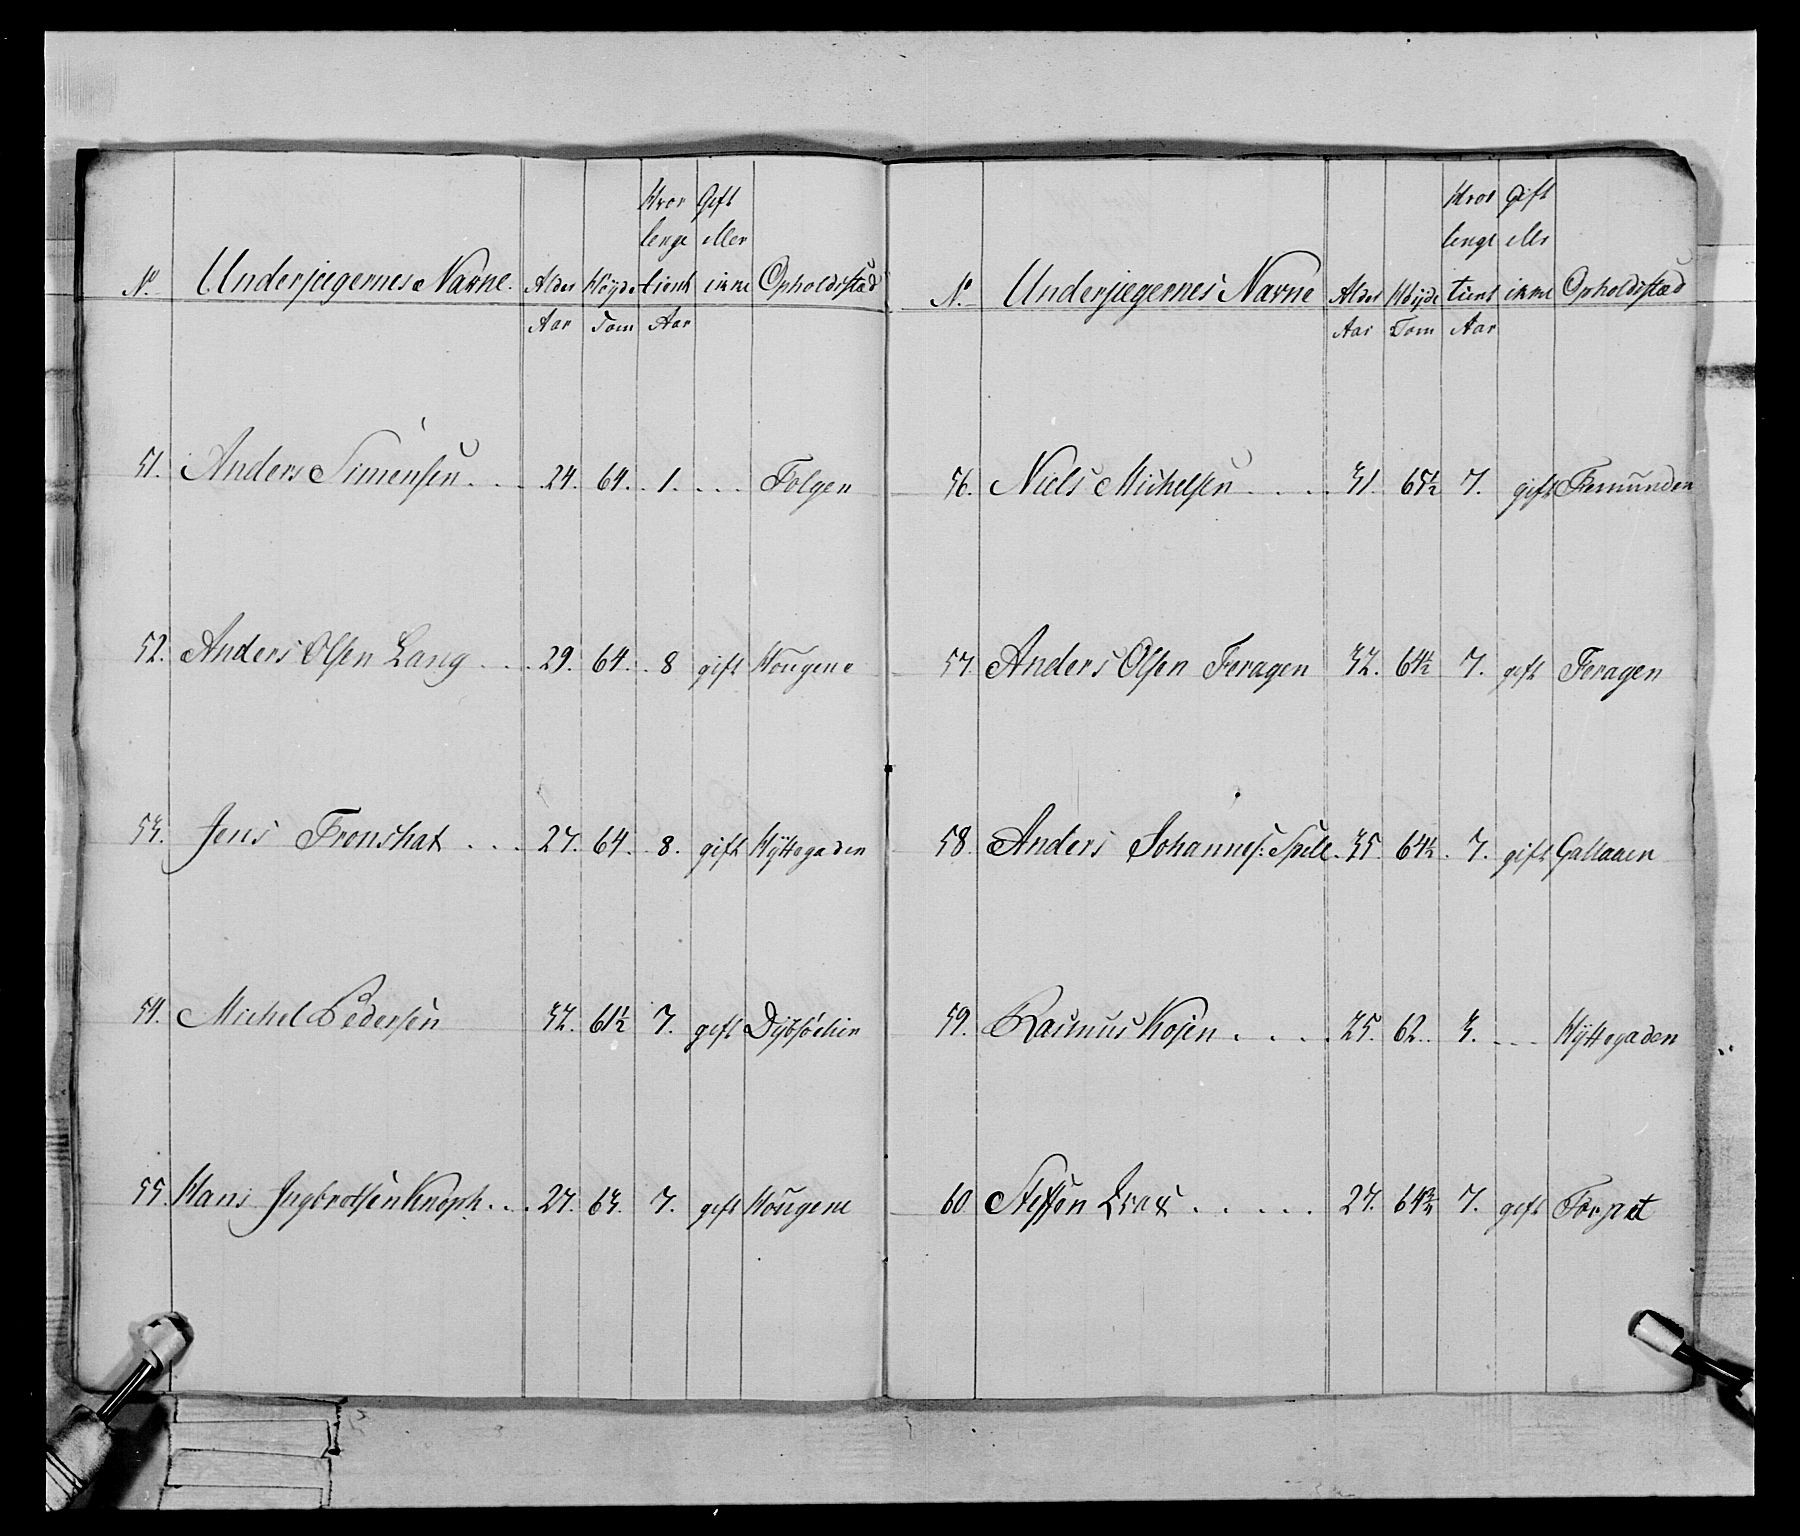 Hvor Gift
lenge eller
No. Underjægernes Navne. Alder Høyde tient ikke Opholdsstæd
Aar Tom Aar
51. Anders Simensen . . . 24. 64. 1. . . . Folgen
52. Anders Olsen Lang . . . 29. 64. 8 gift Hougene
53. Jens Tronshat . . . 27. 64. 8. gift Hyttegaden
54. Michel Pedersen 32. 61½ 7. gift
55. Hans Ingbrotsen Knoph . . . 27. 63. 7. gift Hougene
Hvor Gift
lenge eller
No. Underjægernes Navne Alder Høyde tient ikke Opholdsstæd
Aar Tom Aar
56. Niels Michelsen . . . . 31. 65½ 7. gift Femunden
57. Anders Olsen Feragen 32. 64½ 7. gift Feragen
58. Anders Johannes: Spell. 35. 64½. 7. gift Gallaaen
59. Rasmus Kojen . . . . 25. 62. 3. . . . Hyttegaden
60 Steffen . . . . . 27. 64¾ 7. gift Torpet